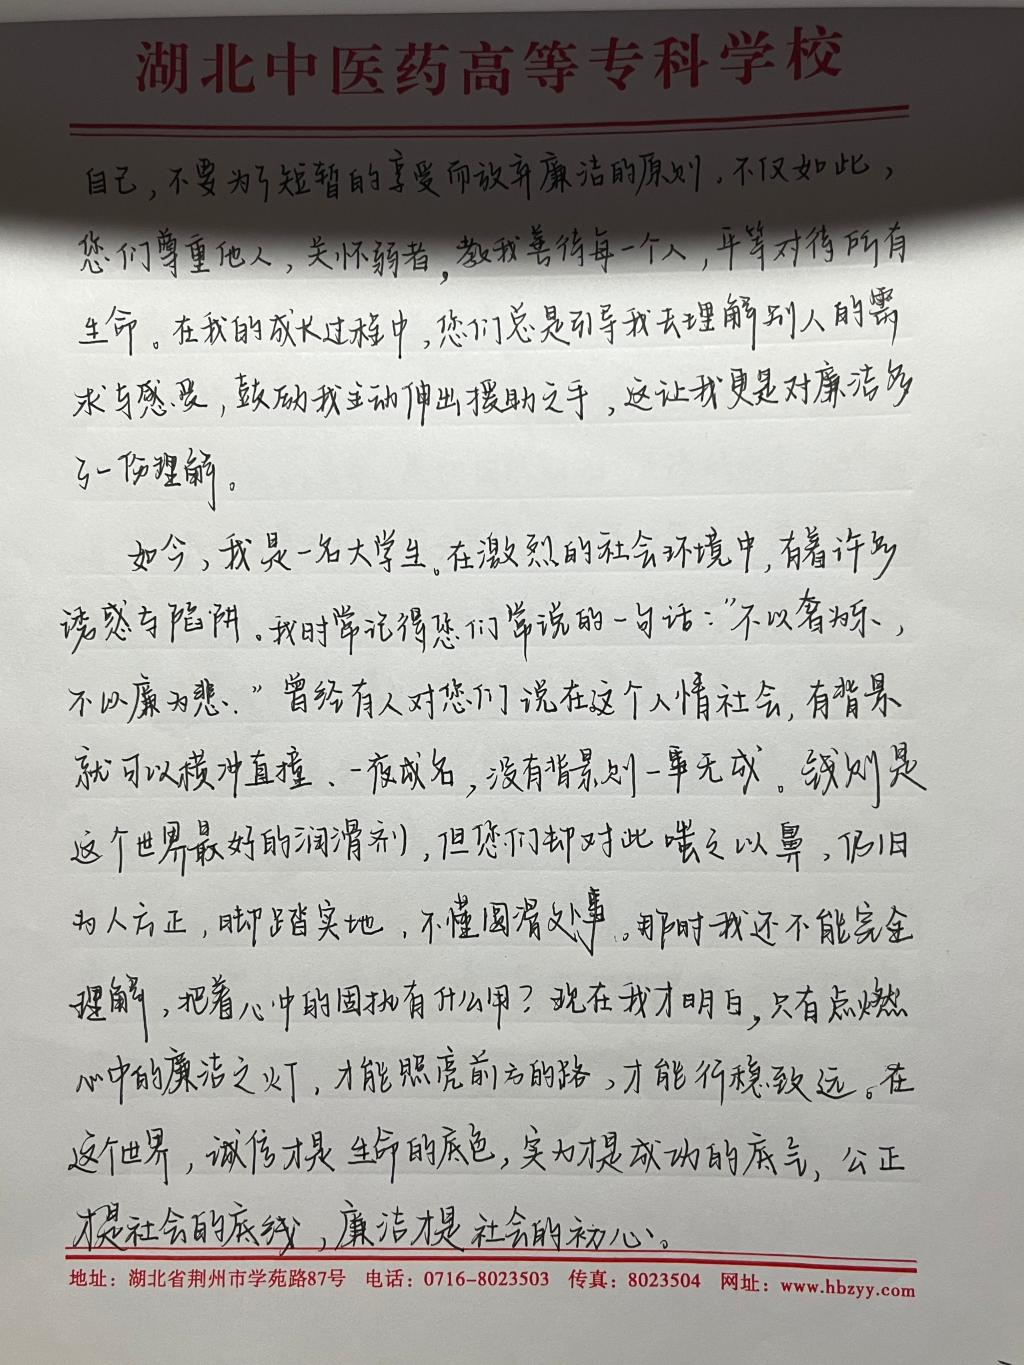 湖北中医药高等专科学校
自己，不要为了短暂的享受而放弃廉洁的原则。不仅如此，
您们尊重他人，关怀弱者，教我善待每一个人，平等对待所有
生命。在我的成长过程中，您们总是引导我去理解别人的需
求与感受，鼓励我主动伸出援助之手，这让我更是对廉洁多
了一份理解。
如今，我是一名大学生。在激烈的社会环境中，有着许多
诱惑与陷阱。我时常记得您们常说的一句话：“不以奢为乐，
不以廉为悲。”曾经有人对您们说在这个人情社会，有背景
就可以横冲直撞、一夜成名，没有背景则一事无成。钱则是
这个世界最好的润滑剂，但您们却对此嗤之以鼻，仍旧
为人方正，脚踏实地，不懂圆滑处事。那时我还不能完全
理解，把着心中的固执有什么用？现在我才明白，只有点燃
心中的廉洁之灯，才能照亮前方的路，才能行稳致远。在
这个世界，诚信才是生命的底色，实力才是成功的底气，公正
才是社会的底线，廉洁才是社会的初心。
地址：湖北省荆州市学苑路87号 电话：0716-8023503 传真：8023504 网址：www.hbzyy.com